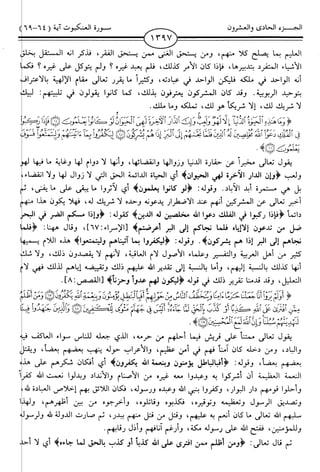 الجـــزء الحادى والعشرون
سورة العنكبوت آية (٦٤-٦٩)
١٣٩٧
العليم بما يصلح كلا منهم، ومن يستحق الغنى ممن يستحق الفقر، فذكر انه المستقل بخلق
الأشياء المتفرد بتدبيرها، فإذا كان الأمر كذلك، فلم يعبد غيره ؟ ولم يتوكل على غيره ؟ فكما
أنه الواحد في ملكه فليكن الواحد في عبادته، وكثيراً ما يقرر تعالى مقام الإلهية بالاعتراف
بتوحيد الربوبية. وقد كان المشركون يعترفون بذلك، كما كانوا يقولون في تلبيتهم: لبيك
لا شريك لك، إلا شريكاً هو لك، تملكه وما ملك.
يقول تعالى مخبراً عن حقارة الدنيا وزوالها وانقضائها، وأنها لا دوام لها وغاية ما فيها لهو
ولعب ﴿وإن الدار الآخرة لهي الحيوان﴾ أي الحياة الدائمة الحق التي لا زوال لها ولا انقضاء،
بل هي مستمرة أبد الآباد. وقوله: ﴿لو كانوا يعلمون﴾ أي لآثروا ما يبقى على ما يفنى، ثم
أخبر تعالى عن المشركين أنهم عند الاضطرار يدعونه وحده لا شريك له، فهلا يكون هذا منهم
دائماً ﴿فإذا ركبوا في الفلك دعوا الله مخلصين له الدين﴾ كقوله: ﴿وإذا مسكم الضر في البحر
ضل من تدعون إلا إياه فلما نجاكم إلى البر أعرضتم﴾ [الإسراء: ٦٧]، وقال ههنا: ﴿فلما
نجاهم إلى البر إذا هم يشركون﴾. وقوله: ﴿ليكفروا بما آتيناهم وليتمتعوا﴾ هذه اللام يسميها
كثير من أهل العربية والتفسير وعلماء الأصول لام العاقبة، لأنهم لا يقصدون ذلك، ولا شك
أنها كذلك بالنسبة إليهم، وأما بالنسبة إلى تقدير الله عليهم ذلك وتقييضه إياهم لذلك فهي لام
التعليل، وقد قدمنا تقرير ذلك في قوله ﴿ليكون لهم عدواً وحزناً﴾ [القصص: ٨].
يقول تعالى ممتناً على قريش فيما أحلهم من حرمه، الذي جعله للناس سواء العاكف فيه
والباد، ومن دخله كان آمناً فهم في أمن عظيم، والأعراب حوله ينهب بعضهم بعضاً، ويقتل
بعضهم بعضاً، وقوله: ﴿أفبالباطل يؤمنون وبنعمة الله يكفرون﴾ أي أفكان شكرهم على هذه
النعمة العظيمة أن أشركوا به وعبدوا معه غيره من الأصنام والأنداد وبدلوا نعمت الله كفراً
وأحلوا قومهم دار البوار، وكفروا بنبي الله وعبده ورسوله، فكان اللائق بهم إخلاص العبادة لله،
وتصديق الرسول وتعظيمه وتوقيره، فكذبوه وقاتلوه، وأخرجوه من بين أظهرهم، ولهذا
سلبهم الله تعالى ما كان أنعم به عليهم، وقتل من قتل منهم ببدر، ثم صارت الدولة لله ولرسوله
وللمؤمنين، ففتح الله على رسوله مكة، وأرغم آنافهم وأذل رقابهم.
ثم قال تعالى: ﴿ومن أظلم ممن افترى على الله كذباً أو كذب بالحق لما جاءه﴾ أي لا أحد